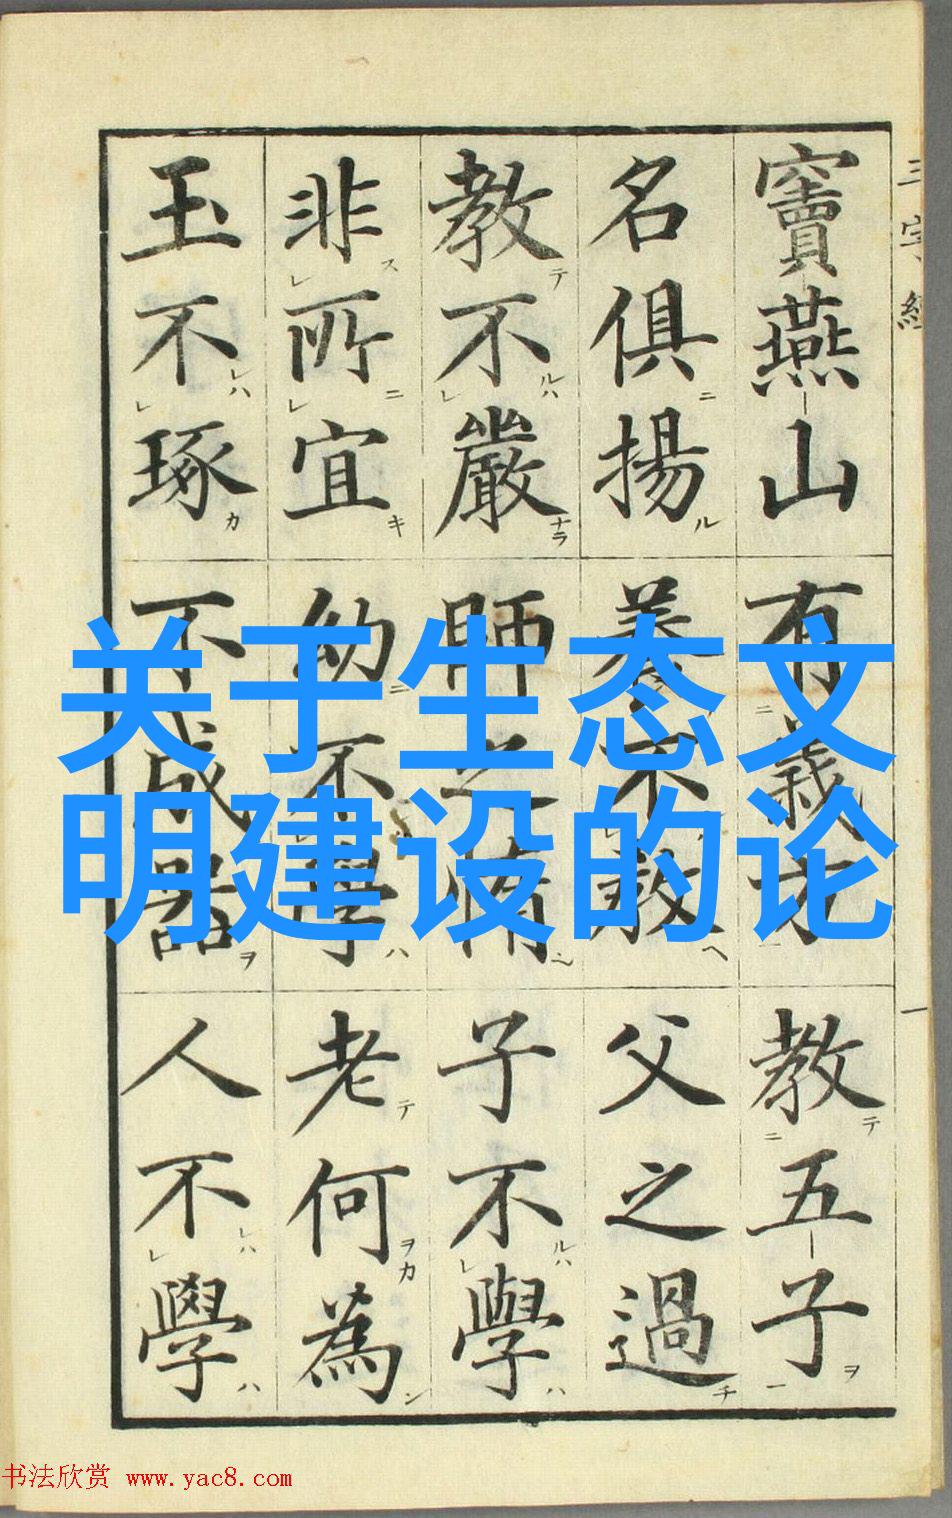 三字經
一
竇燕山有義方教五子
名俱揚養不教父之過
教不嚴師之惰子不學
非所宜幼不學老何為
玉不琢不成器人不學
关于生态文
明建设的论
书法欣赏 www.yac8.com